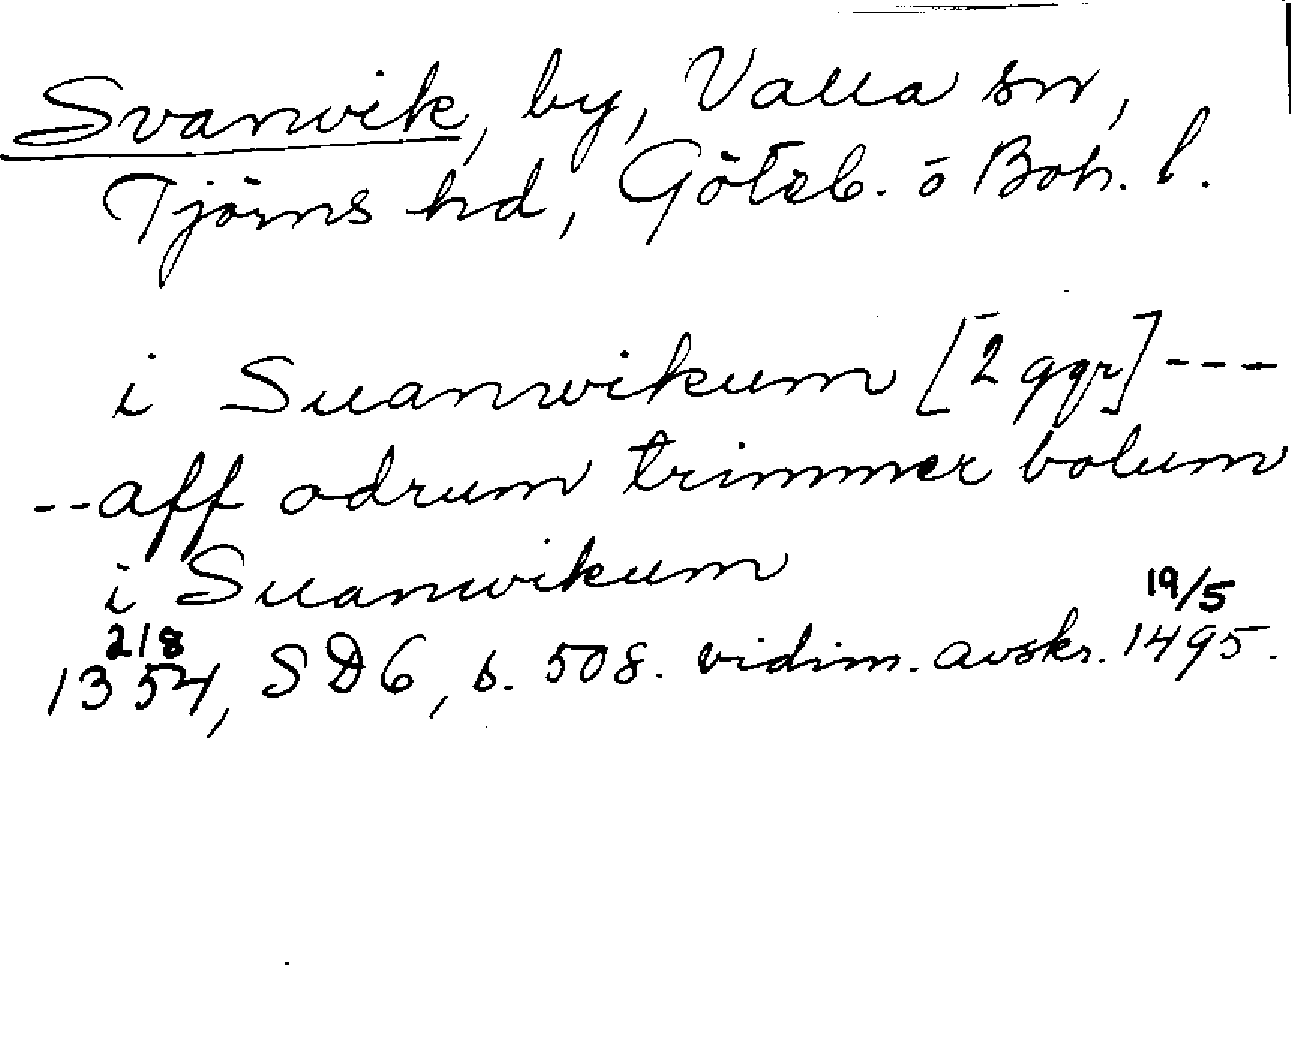 Svanvik, by, Valla sn,
Tjörns hd, Göteb. o Boh. l.
i Suanwikum [2 ggr] ---
--aff odrum trimmer bolum
i Suanwikum
2/8 19/5
1354, SD6, s. 508. vidim. avskr. 1495.